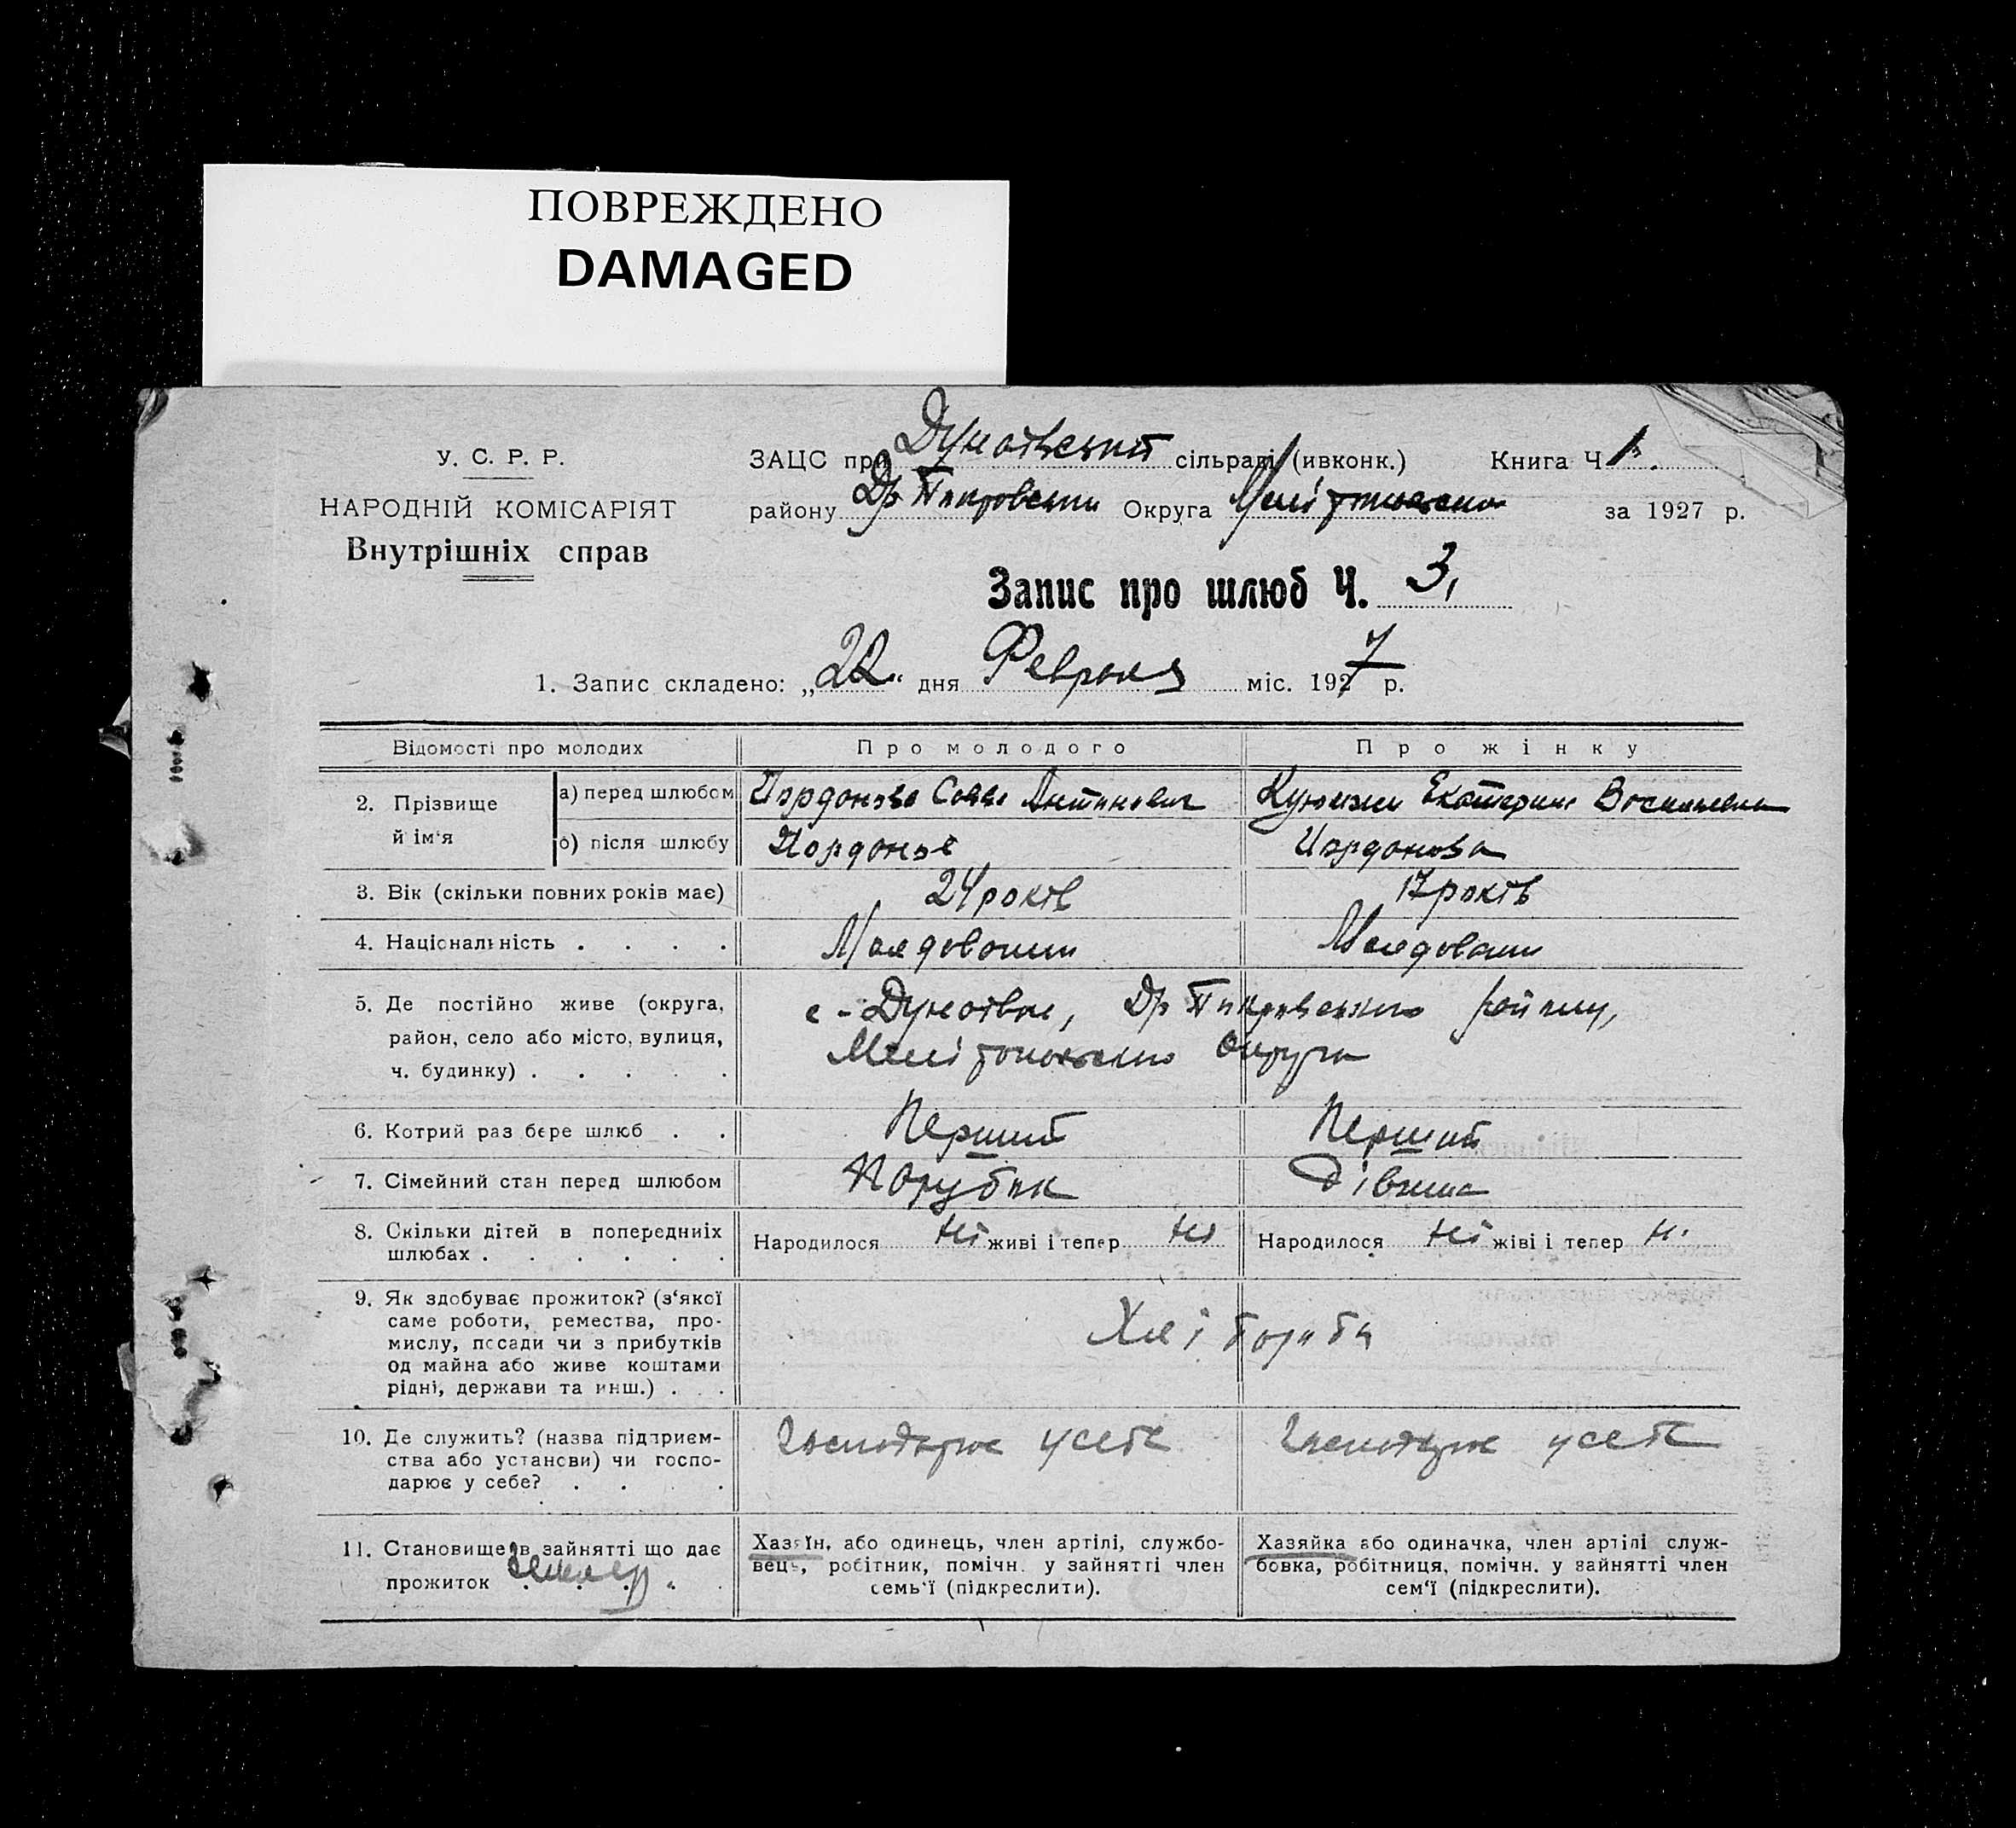 ПОВРЕЖДЕНО
DAMAGED
У. С. Р. Р.
НАРОДНІЙ КОМІСАРІЯТ
Внутрішніх справ
ЗАЦС при сільраді (ивконк.) Книга Ч. 1.
району Округа за 1927 р.
Запис про шлюб Ч. 3,
1. Запис складено: „22“ дня Февроля міс. 1927 р.
Відомості про молодих Про молодого Про жінку
2. Прізвище й ім'я
а) перед шлюбом Иордонов Савва Антинович Екатерина
б) після шлюбу Иордонов Иордонова
3. Вік (скільки повних років має) 24 років 17 років
4. Національність . . . . Молдовони Молдовани
5. Де постійно живе (округа,
район, село або місто, вулиця,
ч. будинку) . . . . .
с-Дунаївка, району,
Мелітопольсько Округа
6. Котрий раз бере шлюб . . Перший Перший
7. Сімейний стан перед шлюбом Порубок Дівиця
8. Скільки дітей в попередніх
шлюбах . . . . . .
Народилося ні живі і тепер ні Народилося ні жіві і тепер н.
9. Як здобуває прожиток? (з'якої
саме роботи, ремества, про-
мислу, посади чи з прибутків
од майна або живе коштами
рідні, держави та инш.) . . .
Хлібороби
10. Де служить? (назва підприєм-
ства або установи) чи госпо-
дарює у себе? . . . .
Господарює у себе Господарює у себе
11. Становище в зайнятті що дає
прожиток . . . . .
Хазяїн, або одинець, член артілі, службо-
вець, робітник, помічн. у зайнятті член
семь'ї (підкреслити).
Хазяйка або одиначка, член артілі служ-
бовка, робітниця, помічн. у зайнятті член
сем'ї (підкреслити).